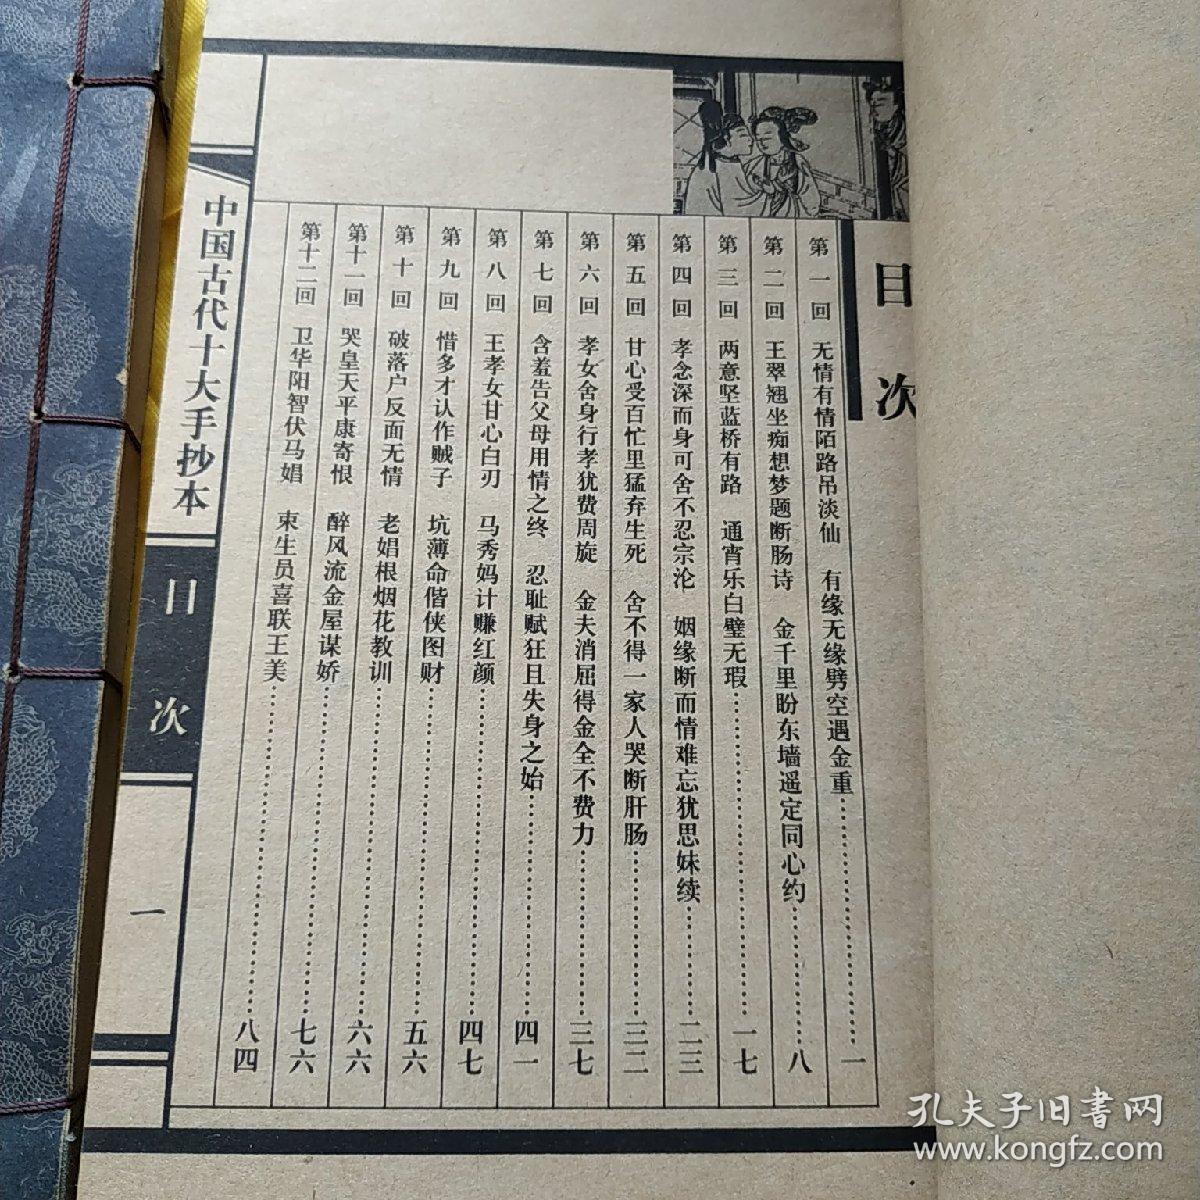 目次
第一回 无情有情陌路吊淡仙 有缘无缘劈空遇金重……一
第二回 王翠翘坐痴想梦题断肠诗 金千里盼东墙遥定同心约……八
第三回 两意坚蓝桥有路 通宵乐白璧无瑕……一七
第四回 孝念深而身可舍不忍宗沦 姻缘断而情难忘犹思妹续……二三
第五回 甘心受百忙里猛弃生死 舍不得一家人哭断肝肠……三二
第六回 孝女舍身行孝犹费周旋 金夫消屈得金全不费力……三七
第七回 含羞告父母用情之终 忍耻赋狂且失身之始……四一
第八回 王孝女甘心白刃 马秀妈计赚红颜……四七
第九回 惜多才认作贼子 坑薄命偕侠图财……五六
第十回 破落户反面无情 老娼根烟花教训……六六
第十一回 哭皇天平康寄恨 醉风流金屋谋娇……七六
第十二回 卫华阳智伏马娼 束生员喜联王美……八四
中国古代十大手抄本
目次
一
孔夫子旧书网
www.kongfz.com